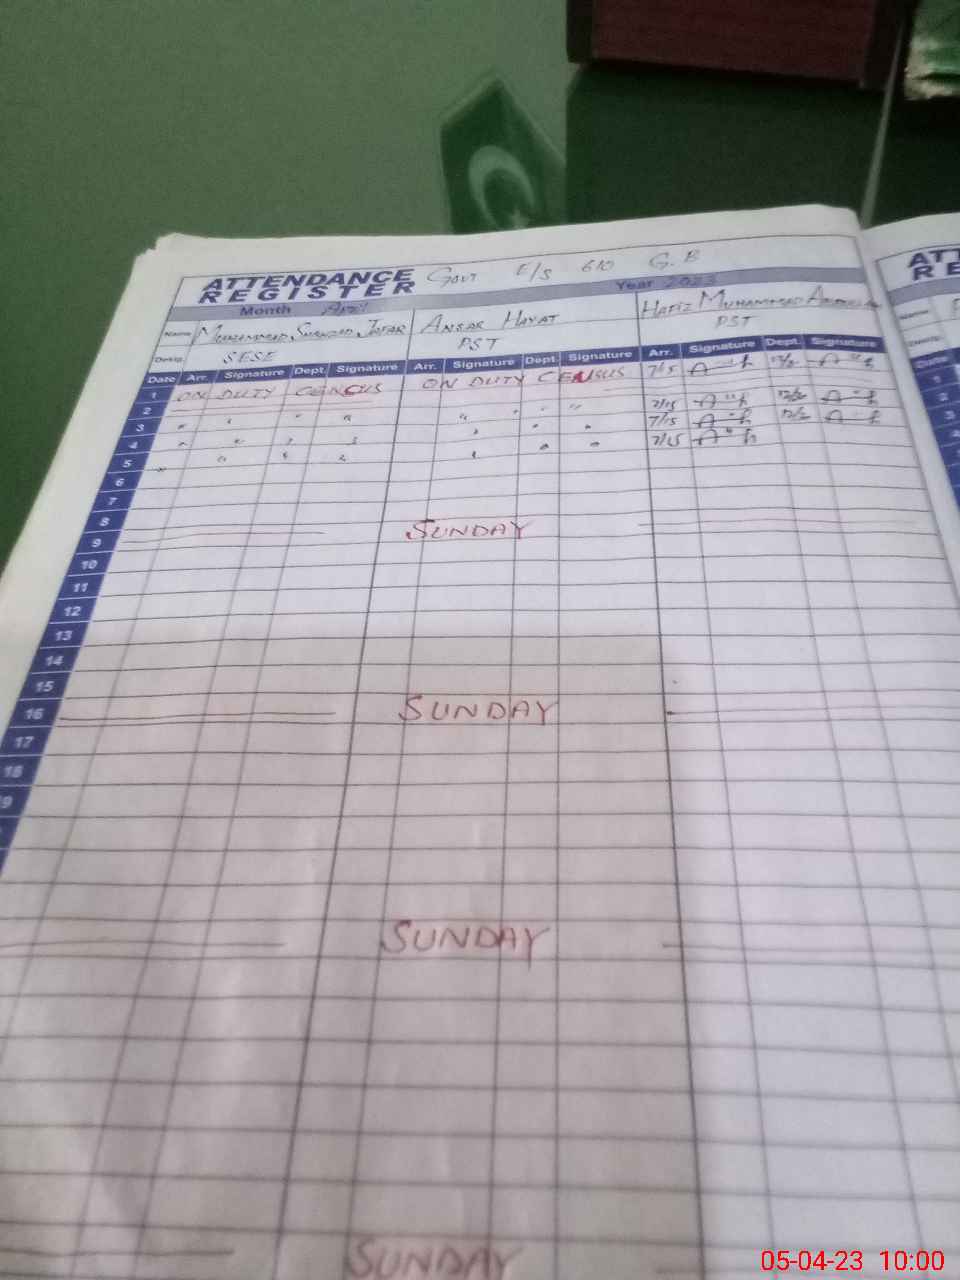 ATTENDANCE REGISTER
Govt E/S 610 G.B
Month April Year 2023
Name MUHAMMAD ANSAR HAYAT HAFIZ MUHAMMAD
Desig. SESE PST PST
Date Arr. Signature Dept. Signature Arr. Signature Dept. Signature Arr. Signature Dept. Signature
1 ON DUTY CENSUS ON DUTY CENSUS 7/15 12/2
2 " " " " " " 7/15 12/2
3 " " " " " " " 7/15 12/2
4 " " " " " " " 7/15
5
6
7
8
9 SUNDAY
10
11
12
13
14
15
16 SUNDAY
17
18
9
SUNDAY
SUNDAY
ATT
RE
Name
Date
1
2
3
05-04-23 10:00